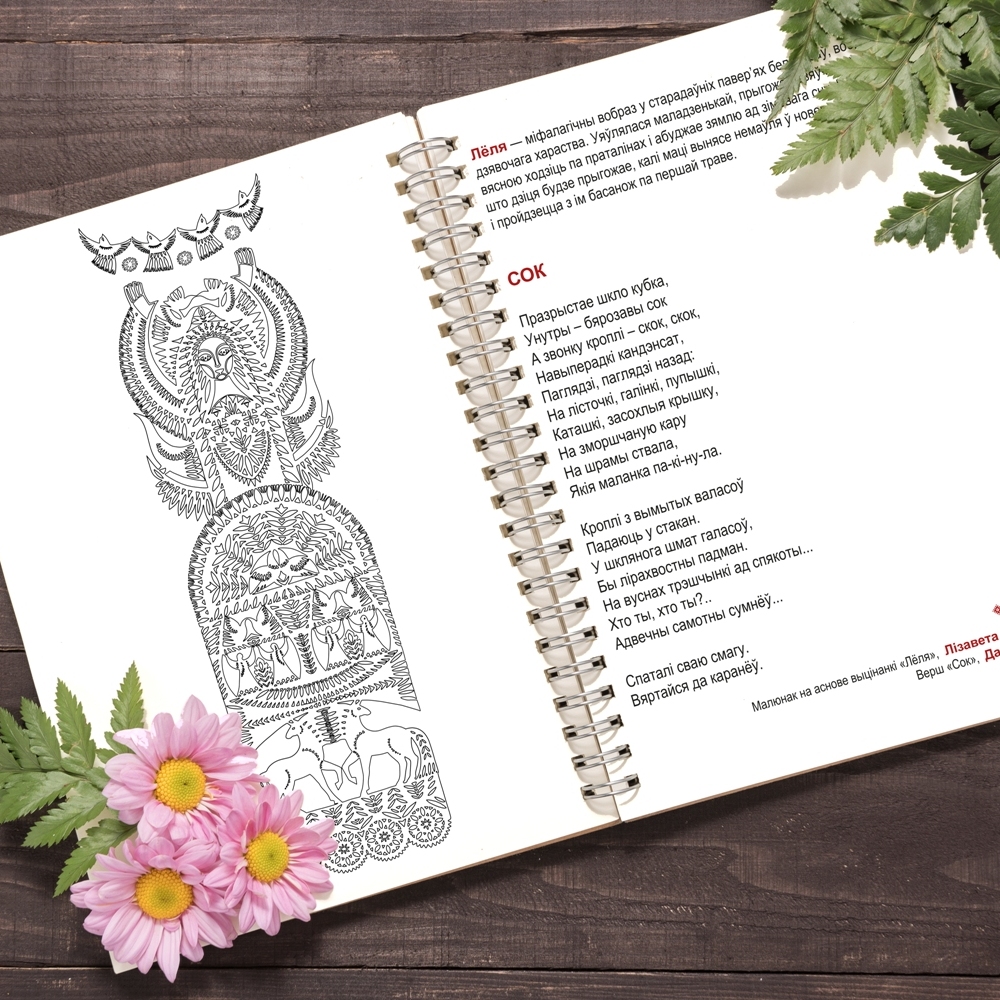 Лёля — міфалагічны вобраз у старадаўніх павер'ях
дзявочага хараства. Уяўлялася маладзенькай,
вясною ходзіць па праталінах і абуджае зямлю ад
што дзіця будзе прыгожае, калі маці вынясе немаўля ў
і пройдзецца з ім басанож па першай траве.
СОК
Празрыстае шкло кубка,
Унутры – бярозавы сок
А звонку кроплі – скок, скок,
Навыперадкі кандэнсат,
Паглядзі, паглядзі назад:
На лісточкі, галінкі, пупышкі,
Каташкі, засохлыя крышку,
На зморшчаную кару
На шрамы ствала,
Якія маланка па-кі-ну-ла.
Кроплі з вымытых валасоў
Падаюць у стакан.
У шклянога шмат галасоў,
Бы ліраxвостны падман.
На вуснах трэшчынкі ад спякоты...
Хто ты, хто ты?..
Адвечны самотны сумнёў...
Спаталі сваю смагу.
Вяртайся да каранёў.
Малюнак на аснове выцінанкі «Лёля», Лізавета
Верш «Сок»,